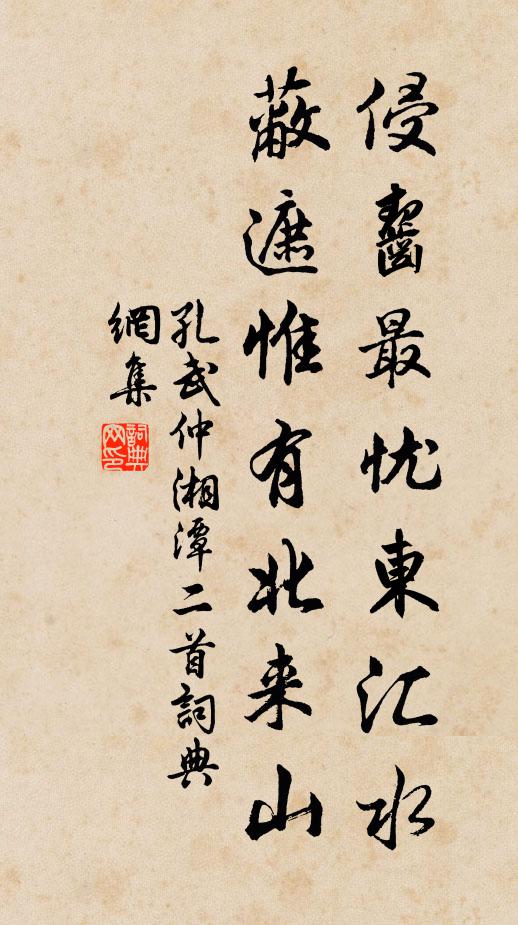 侵齧最忧東汇水
蔽遮惟有北来山
孔武仲湘潭二首詞典
網集
詞典
网印